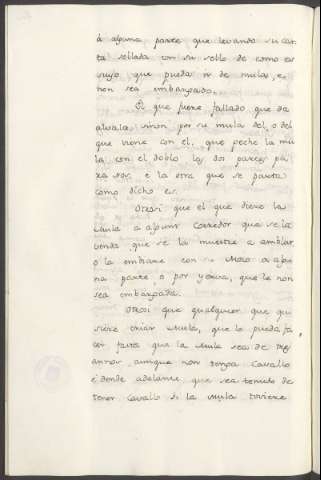 à alguna parte que levando su car
ta sellada con su sello de como es
suyo que pueda ir de mula, e
non sea embargado.
El que fuere fallado que da
alvala sinon por su mula del, o del
que viene con el, que peche la mu
la con el doblo los dos partes pa
ra nos, e la otra que se parta
como dicho es.
Otrosi que el que diere la
Mula a algunt Corredor que se la
venda que se la muestre a amblar
o la embiare con su Mozo a algu
na parte o por yerva, que le non
sea embargada.
Otrosi que qualquier que qui
siere criar Mula, que lo pueda fa
cer fasta que la Mula sea de tres
annos aunque non tenga Cavallo
e donde adelante, que sea tenudo de
tener Cavallo si la Mula toviere